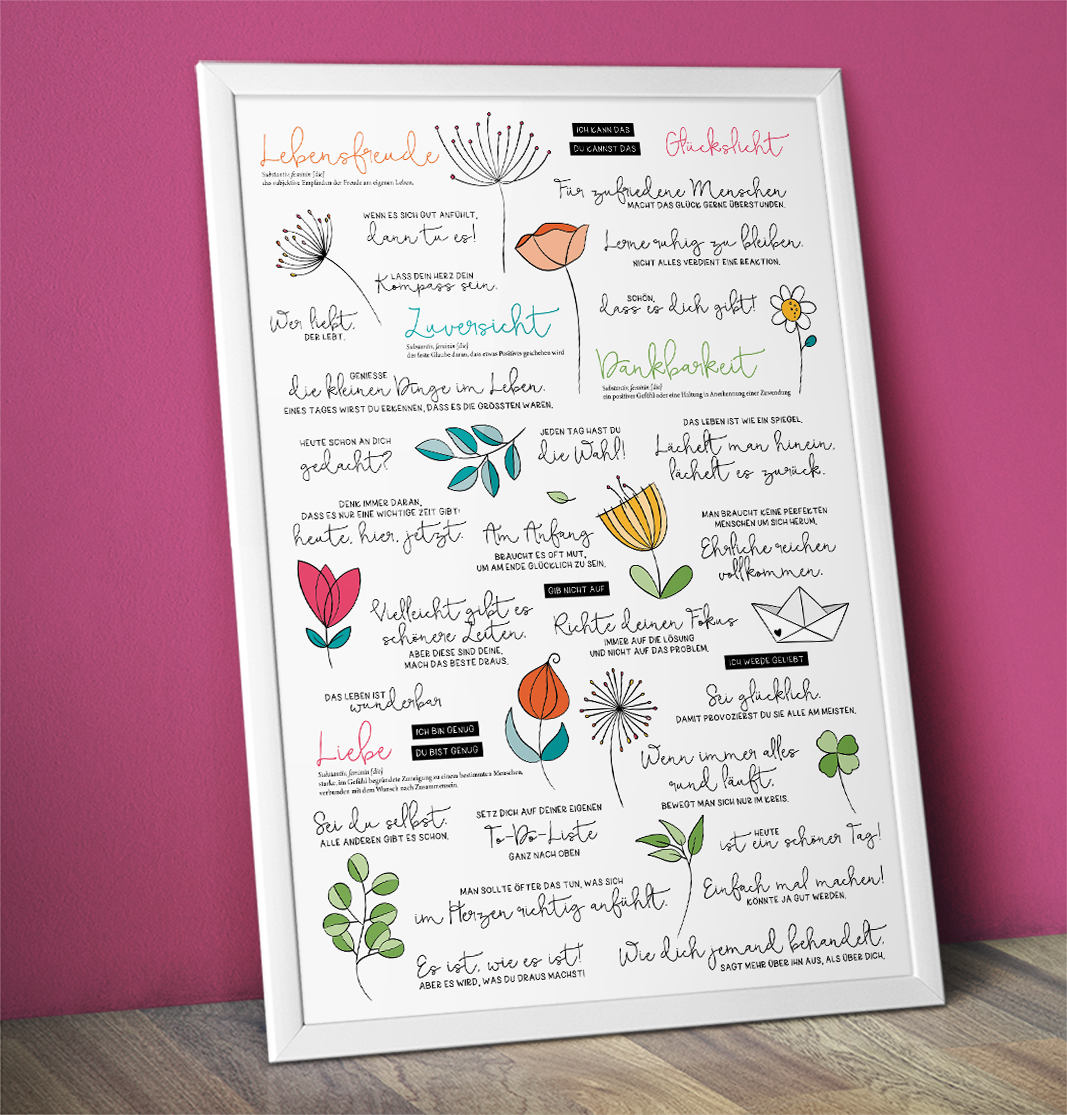 Lebensfreude
Substantiv, feminin [die]
das subjektive Empfinden der Freude am eigenen Leben.
ICH KANN DAS
DU KANNST DAS
Glückslicht
Für zufriedene Menschen
MACHT DAS GLÜCK GERNE ÜBERSTUNDEN.
WENN ES SICH GUT ANFÜHLT,
dann tu es!
Lerne ruhig zu bleiben.
NICHT ALLES VERDIENT EINE REAKTION.
LASS DEIN HERZ DEIN
Kompass sein.
SCHÖN,
dass es dich gibt!
Wer liebt,
DER LEBT.
Zuversicht
Substantiv, feminin [die]
der feste Glaube daran, dass etwas Positives geschehen wird
Dankbarkeit
Substantiv, feminin [die]
ein positives Gefühl oder eine Haltung in Anerkennung einer Zuwendung
GENIESSE
die kleinen Dinge im Leben.
EINES TAGES WIRST DU ERKENNEN, DASS ES DIE GRÖSSTEN WAREN.
HEUTE SCHON AN DICH
gedacht?
JEDEN TAG HAST DU
die Wahl!
DAS LEBEN IST WIE EIN SPIEGEL.
Lächelt man hinein,
lächelt es zurück.
DENK IMMER DARAN,
DASS ES NUR EINE WICHTIGE ZEIT GIBT:
heute, hier, jetzt.
Am Anfang
BRAUCHT ES OFT MUT,
UM AM ENDE GLÜCKLICH ZU SEIN.
MAN BRAUCHT KEINE PERFEKTEN
MENSCHEN UM SICH HERUM,
Ehrliche reichen
vollkommen.
GIB NICHT AUF
Vielleicht gibt es
schönere Zeiten.
ABER DIESE SIND DEINE,
MACH DAS BESTE DRAUS.
Richte deinen Fokus
IMMER AUF DIE LÖSUNG
UND NICHT AUF DAS PROBLEM.
ICH WERDE GELIEBT
DAS LEBEN IST
wunderbar
Sei glücklich.
DAMIT PROVOZIERST DU SIE ALLE AM MEISTEN.
Liebe
Substantiv, feminin [die]
starke, im Gefühl begründete Zuneigung zu einem bestimmten Menschen,
verbunden mit dem Wunsch nach Zusammensein.
ICH BIN GENUG
DU BIST GENUG
Wenn immer alles
rund läuft,
BEWEGT MAN SICH NUR IM KREIS.
Sei du selbst.
ALLE ANDEREN GIBT ES SCHON.
SETZ DICH AUF DEINER EIGENEN
To-Do-Liste
GANZ NACH OBEN
HEUTE
ist ein schöner Tag!
MAN SOLLTE ÖFTER DAS TUN, WAS SICH
im Herzen richtig anfühlt.
Einfach mal machen!
KÖNNTE JA GUT WERDEN.
Es ist, wie es ist!
ABER ES WIRD, WAS DU DRAUS MACHST!
Wie dich jemand behandelt,
SAGT MEHR ÜBER IHN AUS, ALS ÜBER DICH.